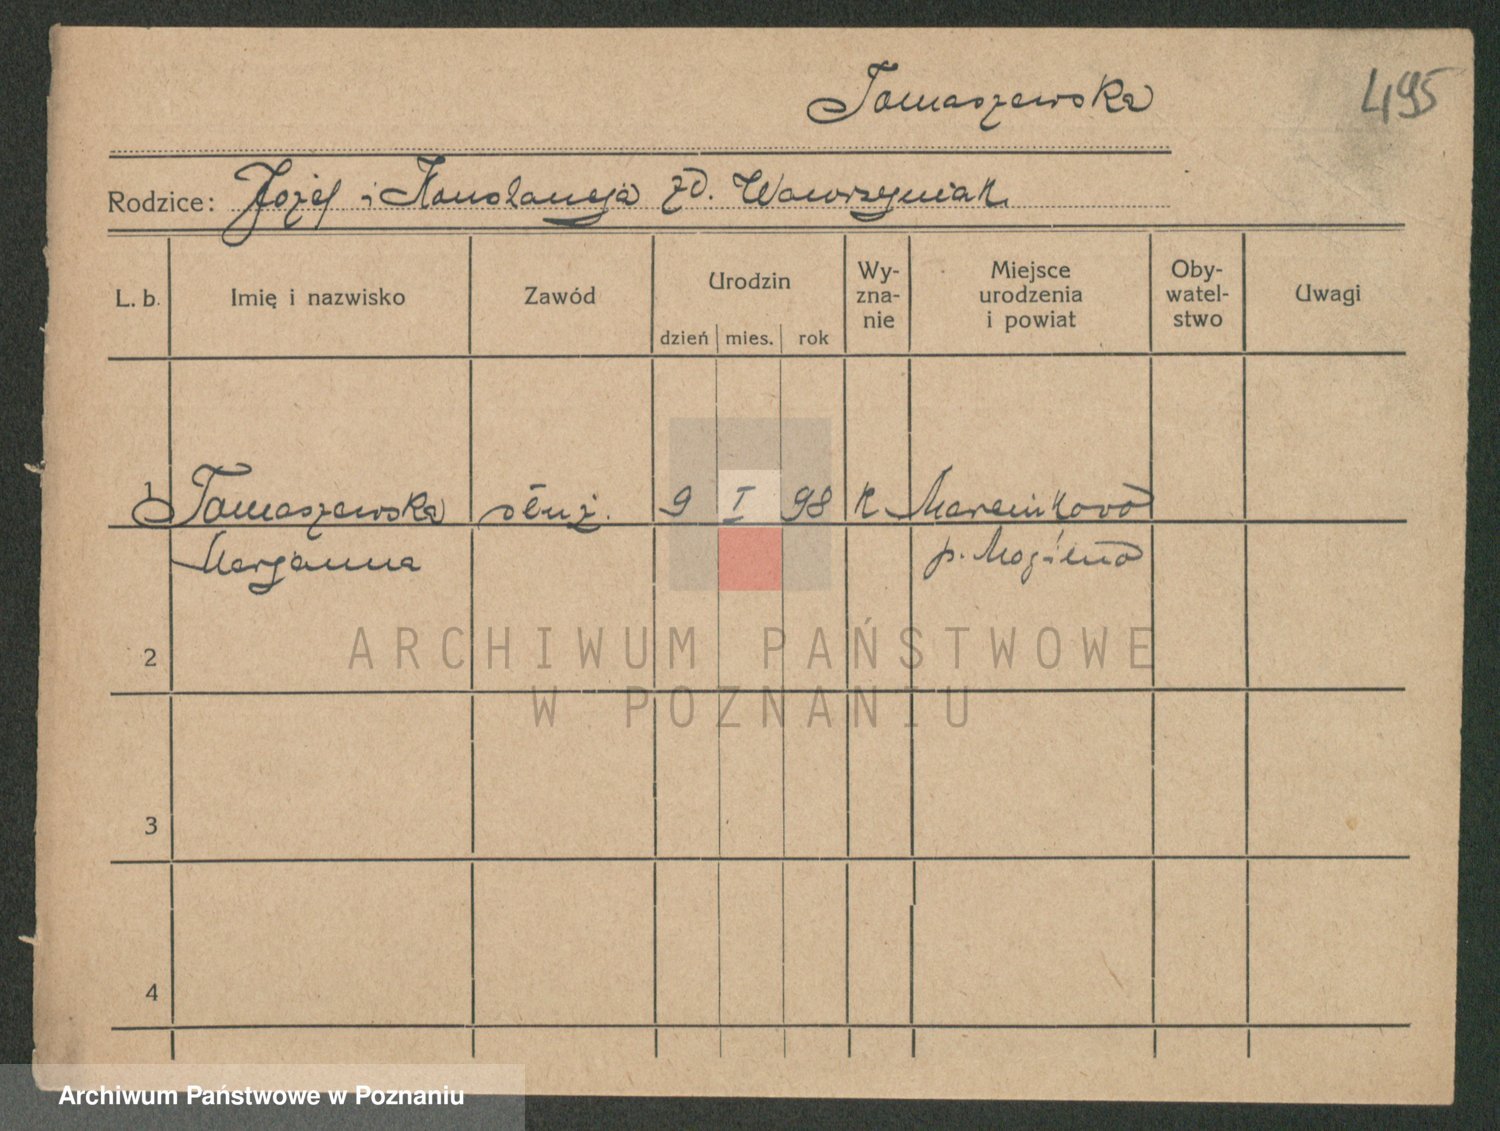 Tomaszewska
495
Rodzice: Józef i Konstancja zd. Wawrzyniak
L. b. Imię i nazwisko Zawód Urodzin dzień mies. rok Wy-zna-nie Miejsce urodzenia i powiat Oby-watel-stwo Uwagi
1 Tomaszewska służ. 9 I 98 k Marcinkowo
Marjanna p. Mogilno
2
3
4
ARCHIWUM PAŃSTWOWE
W POZNANIU
Archiwum Państwowe w Poznaniu